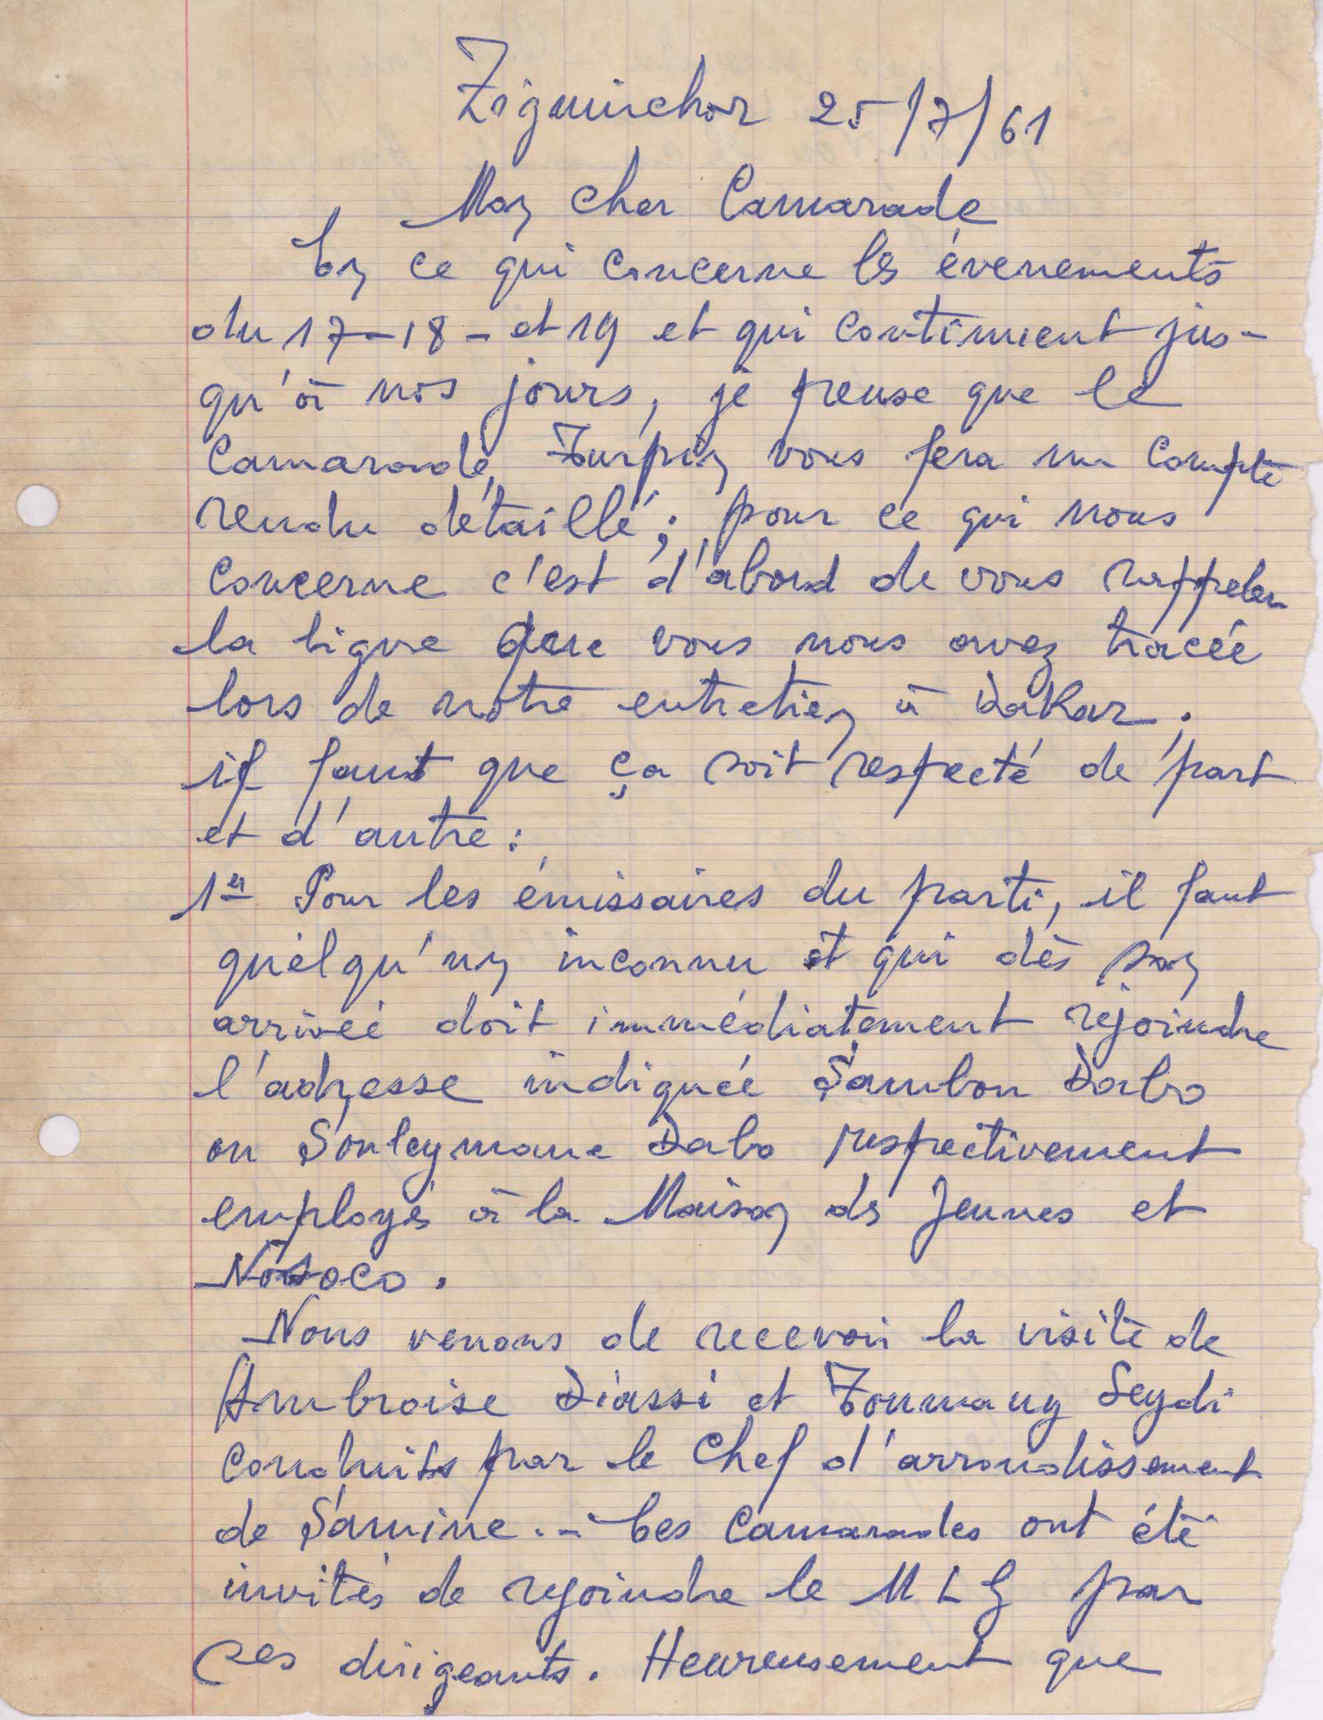 Ziguinchor 25/7/61
Mon cher Camarade
En ce qui concerne les évenements
du 17-18- et 19 et qui continuent jus-
qu'à nos jours, je pense que le
Camarade Turpin vous fera un compte
rendu détaillé; pour ce qui nous
concerne c'est d'abord de vous rappeler
la ligne que vous nous avez tracée
lors de notre entretien à Dakar;
il faut que ça soit respecté de part
et d'autre:
1er Pour les émissaires du parti, il faut
quelqu'un inconnu et qui dès son
arrivée doit immédiatement rejoindre
l'adresse indiquée Sambou Dabo
ou Souleymane Dabo respectivement
employés à la Maison des Jeunes et
Nosoco.
Nous venons de recevoir la visite de
Ambroise Diassi et Toumany Seydi
conduits par le Chef d'arrondissement
de Samine.- Ces Camarades ont été
invités de rejoindre le MLG par
ses dirigeants. Heureusement que